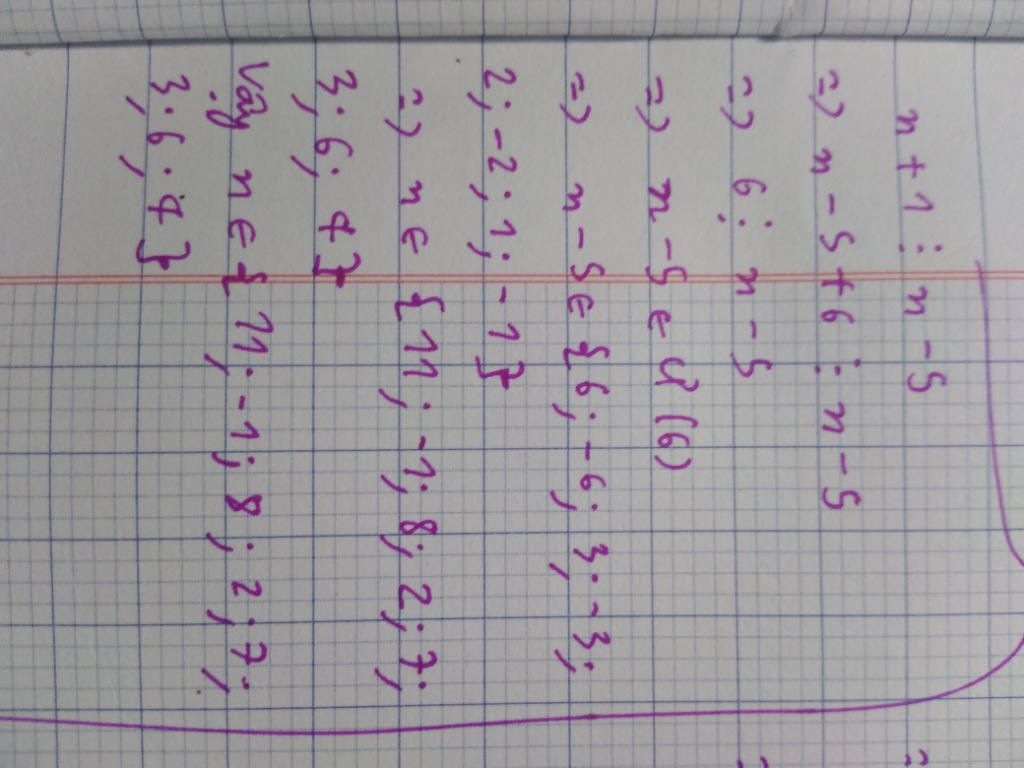 n + 1 ⋮ n - 5
=> n - 5 + 6 ⋮ n - 5
=> 6 ⋮ n - 5
=> n - 5 ∈ Ư(6)
=> n - 5 ∈ {6; -6; 3; -3;
2; -2; 1; -1}
=> n ∈ {11; -1; 8; 2; 7;
3; 6; 4}
Vậy n ∈ {11; -1; 8; 2; 7;
3; 6; 4}